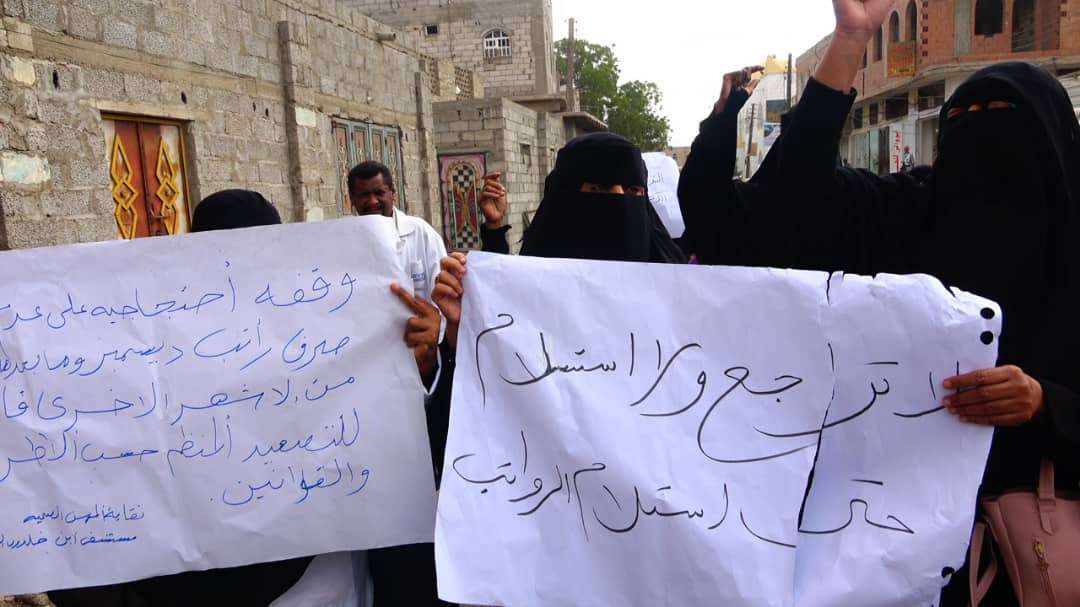 وقفه أحتجاجيه على عدم
صرف راتب ديسمبر وما بعدها
من الاشهر الاخرى
للتصعيد المنظم حسب
والقوانين.
نقابة المهن الصحيه
مستشفى ابن خلدون
لا تراجع ولا استسلام
حتى استلام الرواتب